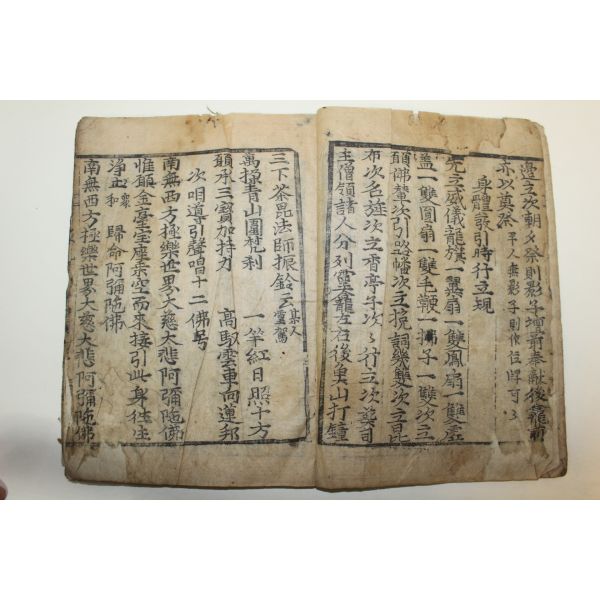 邊立次朝夕祭則影子壇前奉獻後龕前
亦以奠祭 平人無影子則作位牌可
身體發引時行立規
先立威儀龍旗一鳳扇一雙虛
盖一雙圓扇一雙毛鞭一拂子一雙次立
輦次引路幡次立挽詞幾雙次立
布次名旌次立香亭子次行立次奠司
主僧領諸人分列靈龕左右後奧山打鐘
三下茶毘法師振鈴云 某人靈駕
萬揮青山圍梵刹 一竿紅日照十方
願承三寶加持力 高馭雲車向蓮邦
次唱導引聲唱十二佛号
南無西方極樂世界大慈大悲阿彌陁佛
惟願金臺宝座乘空而來接引此身往生
淨土 衆和 歸命阿彌陁佛
南無西方極樂世界大慈大悲阿彌陁佛